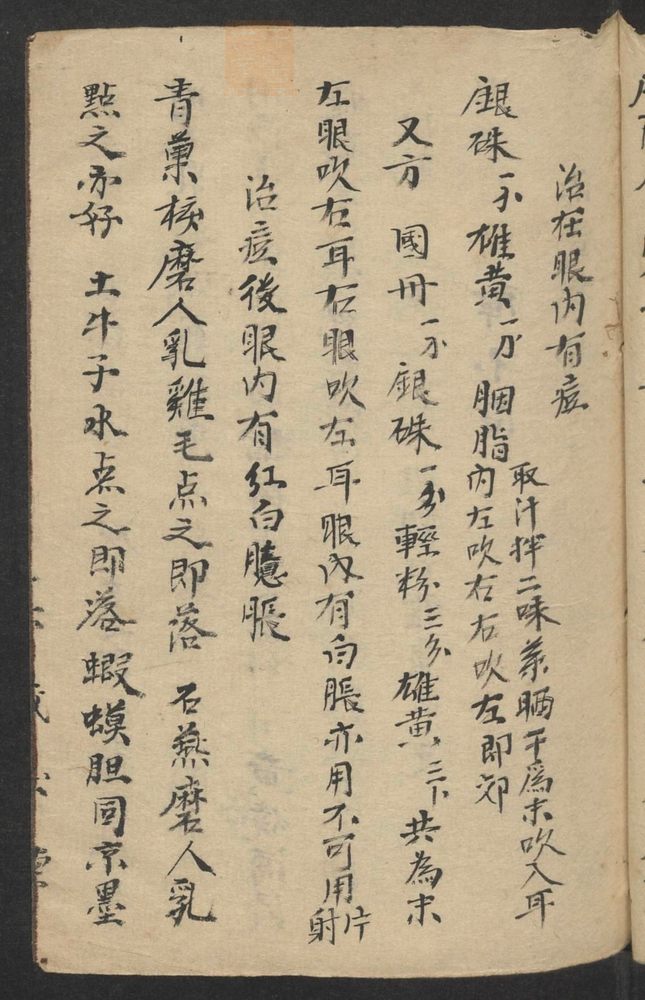 治在眼内有痘
銀硃一分雄黄一分胭脂内左吹右右吹左即卸
取汁拌二味藥晒干爲末吹入耳
又方 國丹一分銀硃一分輕粉三分雄黄三卜共為末
左眼吹右耳右眼吹左耳眼内有白脹亦用不可用片射
治痘後眼内有紅白臆脹
青菓核磨人乳雞毛点之即落 石燕磨人乳
點之亦好 土牛子水点之即落蝦蟆胆同京墨